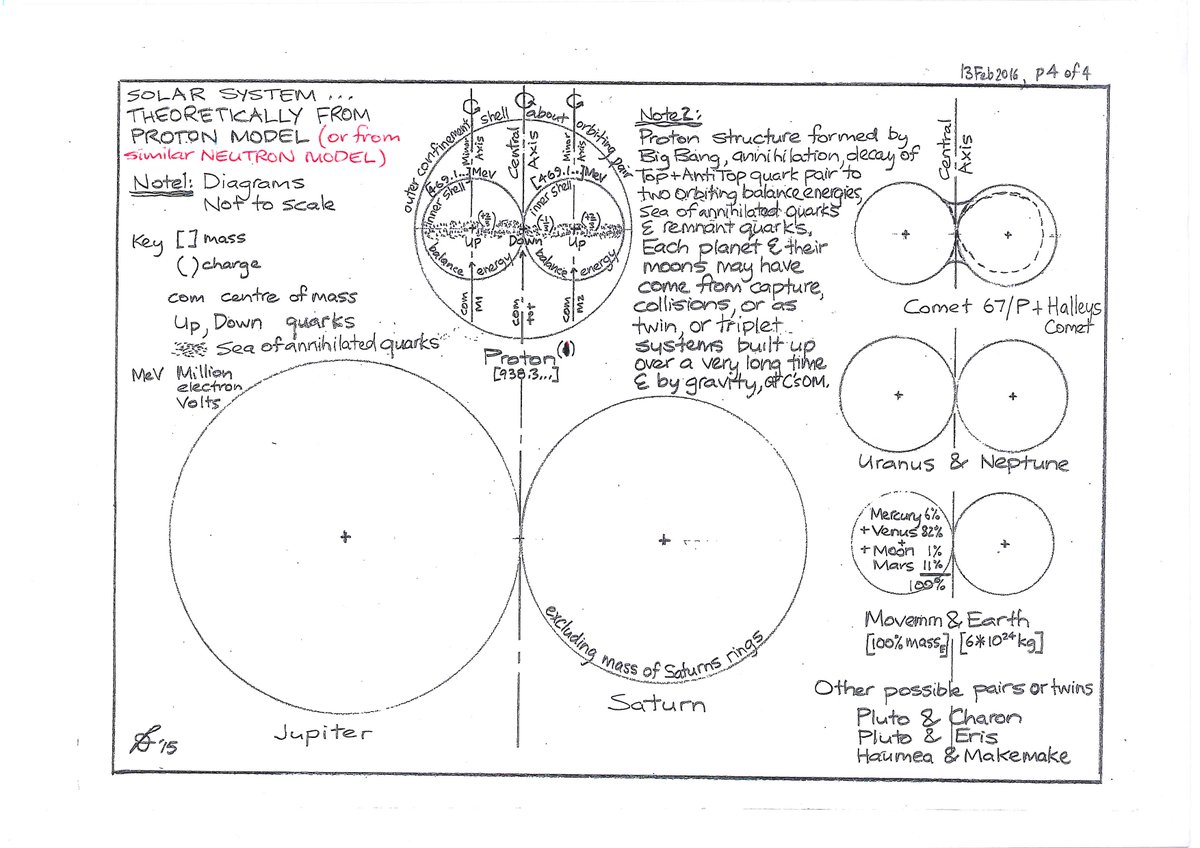 13 Feb 2016, p4 of 4
SOLAR SYSTEM ...
THEORETICALLY FROM
PROTON MODEL (or from
similar NEUTRON MODEL)
Note1: Diagrams
Not to scale
Key [] mass
() charge
com centre of mass
Up, Down quarks
Sea of annihilated quarks
MeV Million
electron
Volts
outer confinement shell about orbiting pair
Minor Axis
Central Axis
Minor Axis
[469.1...] MeV
[469.1...] MeV
inner shell
inner shell
Up Down Up
balance energy
balance energy
com M1
com tot
com M2
Proton
[938.3...]
Note2:
Proton structure formed by
Big Bang, annihilation, decay of
Top+AntiTop quark pair to
two orbiting balance energies,
Sea of annihilated quarks
& remnant quarks.
Each planet & their
moons may have
come from capture,
collisions, or as
twin, or triplet
systems built up
over a very long time
& by gravity,
Central Axis
Comet 67/P + Halleys
Comet
Uranus & Neptune
Mercury 6%
+ Venus 82%
+
+ Moon 1%
Mars 11%
100%
Movemm & Earth
[100% mass E] [6*10²⁴ kg]
Other possible pairs or twins
Pluto & Charon
Pluto & Eris
Haumea & Makemake
excluding mass of Saturns rings
Jupiter
Saturn
'15